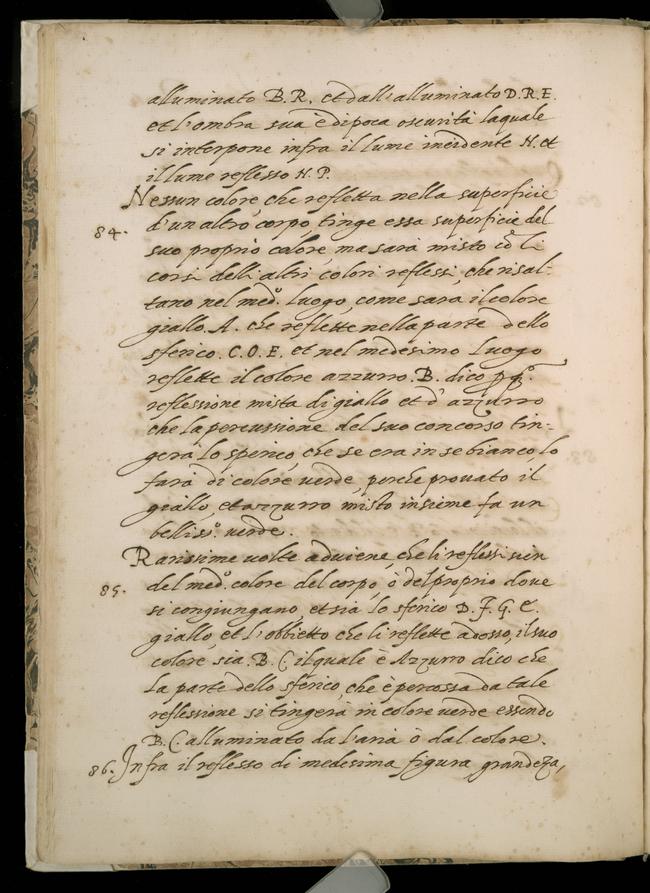 alluminato B.R. et dall'alluminato D.R.E.
et l'ombra sua è di poca oscurità laquale
si interpone infra il lume incidente N. et
il lume reflesso N.P.
Nessun colore, che refletta nella superficie
84. d'un altro corpo, tinge essa superficie del
suo proprio colore, ma sarà misto cō li
corsi delli altri colori reflessi, che risal-
tano nel med.º luogo, come sarà il colore
giallo .A. che reflette nella parte dello
sferico .C.O.E. et nel medesimo luogo
reflette il colore azzurro .B. dico
reflessione mista di giallo et d'azzurro
che la percussione del suo concorso tin-
gerà lo sperico, che se era in se bianco, lo
farà di colore verde, perche provato il
giallo, et azzurro misto insieme fa un
belliss.º verde.
Rarissime volte adviene, che li reflessi sien
85. del med.º colore del corpo, ò del proprio dove
si congiungano, et sia lo sferico D.F.G.E.
giallo, et l'obbietto che li reflette adosso, il suo
colore sia .B.C. il quale è Azzurro dico che
la parte dello sferico, che è percossa da tale
reflessione si tingerà in colore verde essendo
B.C. alluminato da l'aria ò dal colore.
86. Infra il reflesso di medesima figura grandeza,